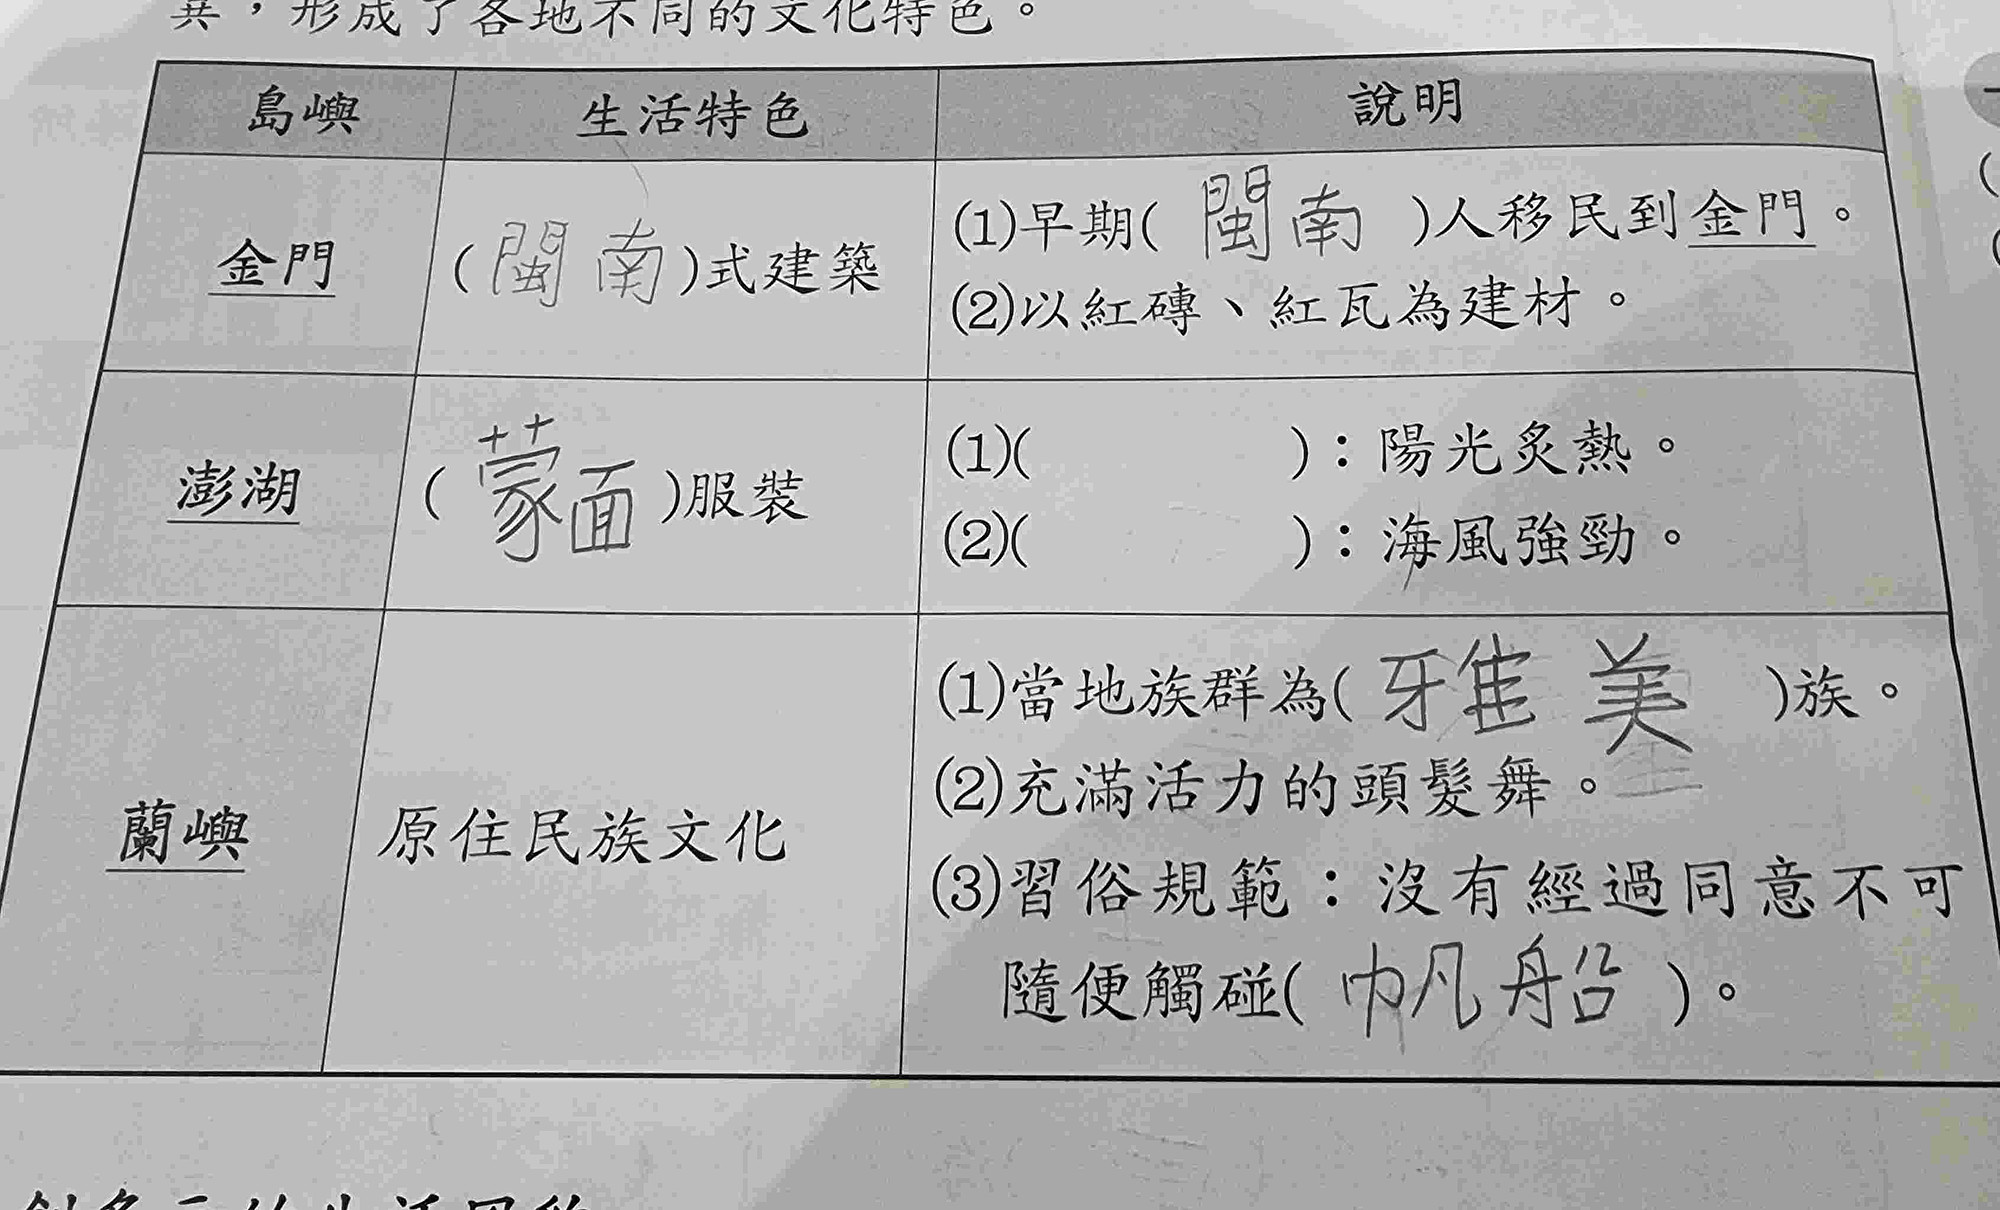 異，形成了各地不同的文化特色。
島嶼 生活特色 說明
金門 (閩南)式建築 (1)早期(閩南)人移民到金門。
(2)以紅磚、紅瓦為建材。
澎湖 (蒙面)服裝 (1)( )：陽光炙熱。
(2)( )：海風強勁。
蘭嶼 原住民族文化 (1)當地族群為(雅美)族。
(2)充滿活力的頭髮舞。
(3)習俗規範：沒有經過同意不可
隨便觸碰(帆船)。